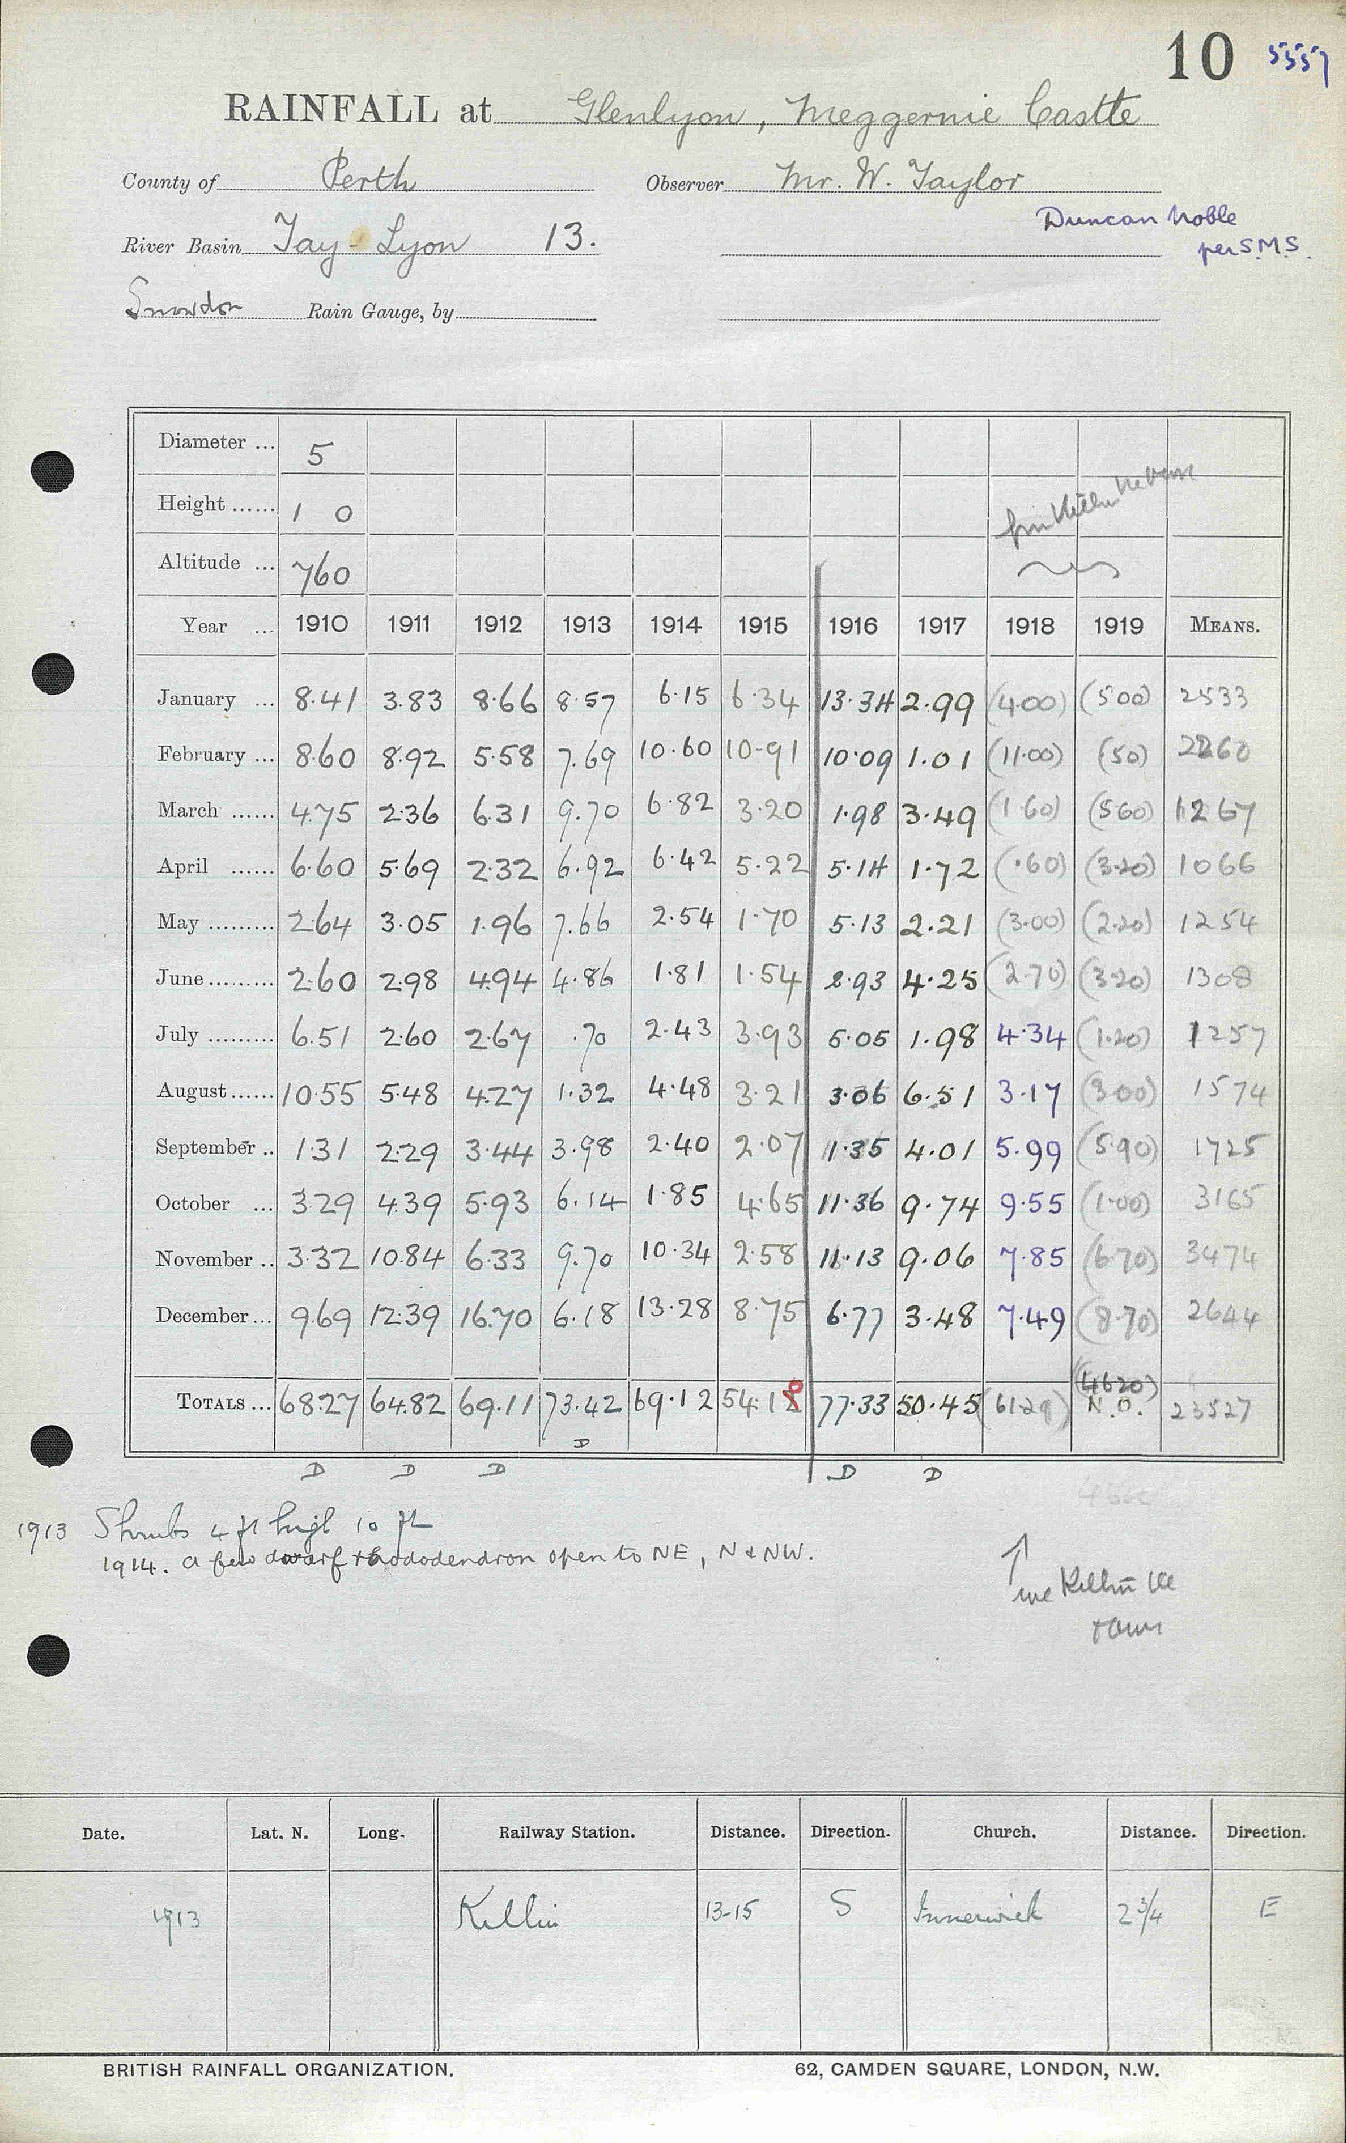 10 5557
RAINFALL at Glenlyon, Meggernie Castle
County of Perth Observer Mr. W. Taylor
Duncan Noble
River Basin Tay - Lyon 13. per S.M.S.
Snowdon Rain Gauge, by
Diameter ... 5
Height ...... 1 0
Altitude ... 760
Year ... 1910 1911 1912 1913 1914 1915 1916 1917 1918 1919 MEANS.
January ... 8.41 3.83 8.66 8.57 6.15 6.34 13.34 2.99 (4.00) (500) 2533
February ... 8.60 8.92 5.58 7.69 10.60 10.91 10.09 1.01 (11.00) (50) 2260
March ...... 4.75 2.36 6.31 9.70 6.82 3.20 1.98 3.49 (1.60) (560) 1267
April ...... 6.60 5.69 2.32 6.92 6.42 5.22 5.14 1.72 (.60) (3.20) 1066
May ......... 2.64 3.05 1.96 7.66 2.54 1.70 5.13 2.21 (3.00) (2.20) 1254
June ......... 2.60 2.98 4.94 4.86 1.81 1.54 2.93 4.25 (2.70) (3.20) 1308
July ......... 6.51 2.60 2.67 .70 2.43 3.93 5.05 1.98 4.34 (1.20) 1257
August ...... 10.55 5.48 4.27 1.32 4.48 3.21 3.06 6.51 3.17 (3.00) 1574
September .. 1.31 2.29 3.44 3.98 2.40 2.07 1.35 4.01 5.99 (5.90) 1725
October ... 3.29 4.39 5.93 6.14 1.85 4.65 11.36 9.74 9.55 (1.00) 3165
November .. 3.32 10.84 6.33 9.70 10.34 2.58 11.13 9.06 7.85 (6.70) 3474
December ... 9.69 12.39 16.70 6.18 13.28 8.75 6.77 3.48 7.49 (8.70) 2644
(4620)
TOTALS ... 68.27 64.82 69.11 73.42 69.12 54.18 77.33 50.45 (61.29) N.O. 23527
D D D D D D
1913 Shrubs 4 ft high 10 ft
1914. a few dwarf rhododendron open to NE, N & NW.
Killin
Date. Lat. N. Long. Railway Station. Distance. Direction. Church. Distance. Direction.
1913 Killin 13-15 S Innerwick 2 3/4 E
BRITISH RAINFALL ORGANIZATION. 62, CAMDEN SQUARE, LONDON, N.W.